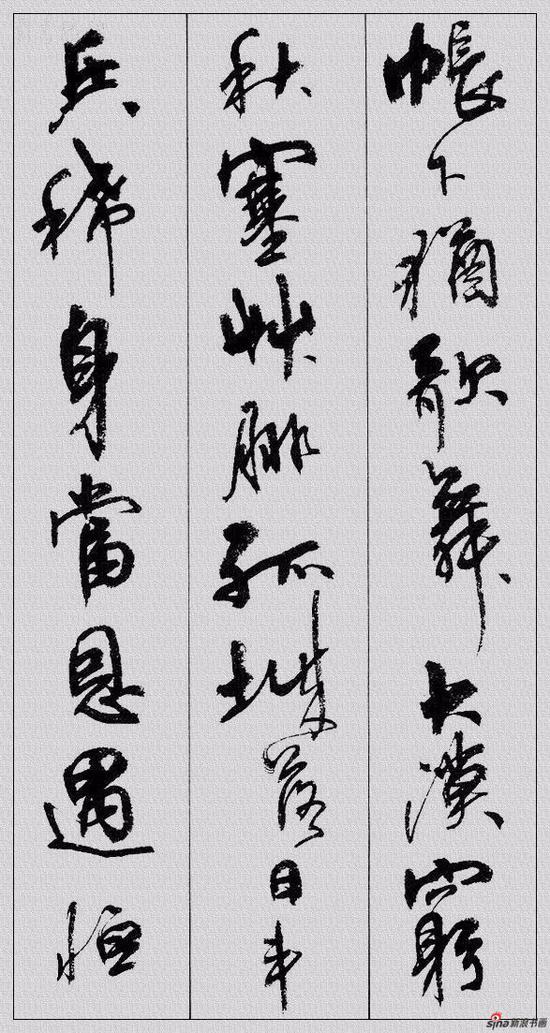 帳下猶歌舞大漠窮
秋塞艸腓孤城落日斗
兵稀身當恩遇恒
sina新浪书画